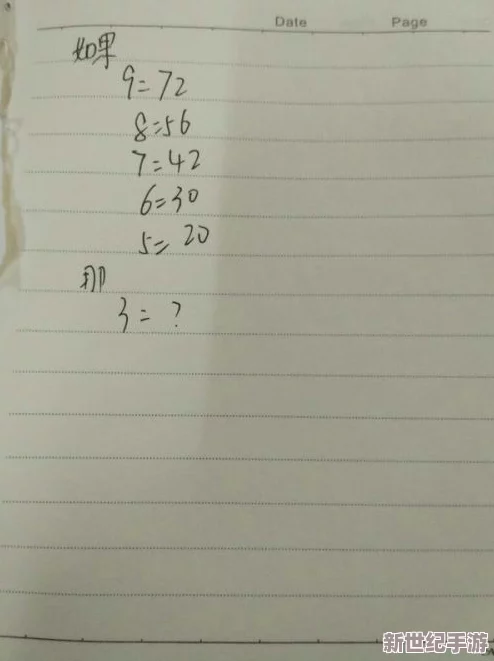 Date Page
如果
9=72
8=56
7=42
6=30
5=20
那
3=?
新世纪手游